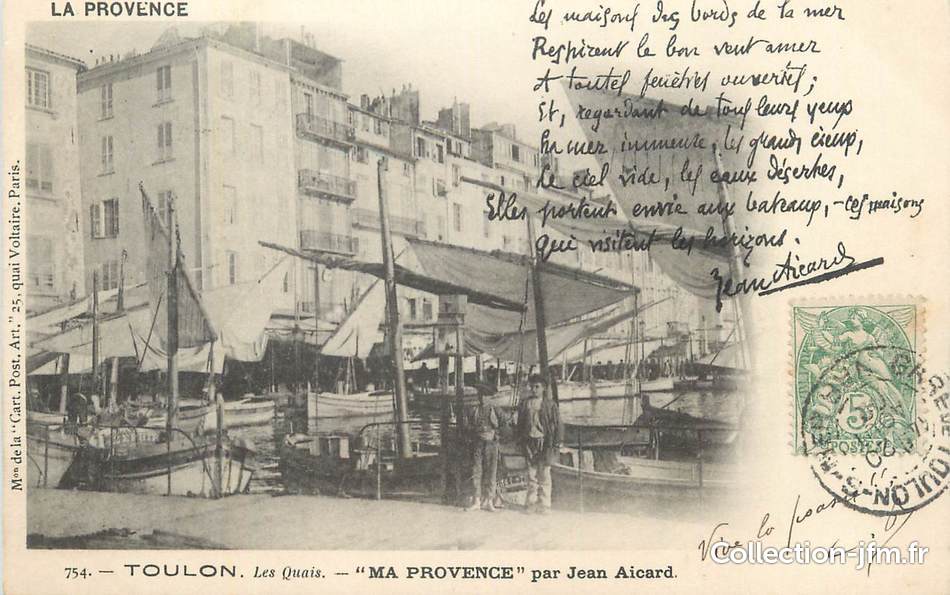 LA PROVENCE
Les maisons des bords de la mer
Respirent le bon vent amer
A toutes fenêtres ouvertes;
Et, regardant de tous leurs yeux
La mer immense, les grands cieux,
Le ciel vide, les eaux désertes,
Elles portent envie aux bateaux, - ces maisons
qui visitent les horizons.
Jean Aicard
Mon de la "Cart. Post. Art." 25, quai Voltaire. Paris.
5
POSTES
TOULON-S-MER
Vive la
754. — TOULON. Les Quais. — "MA PROVENCE" par Jean Aicard.
Collection-jfm.fr